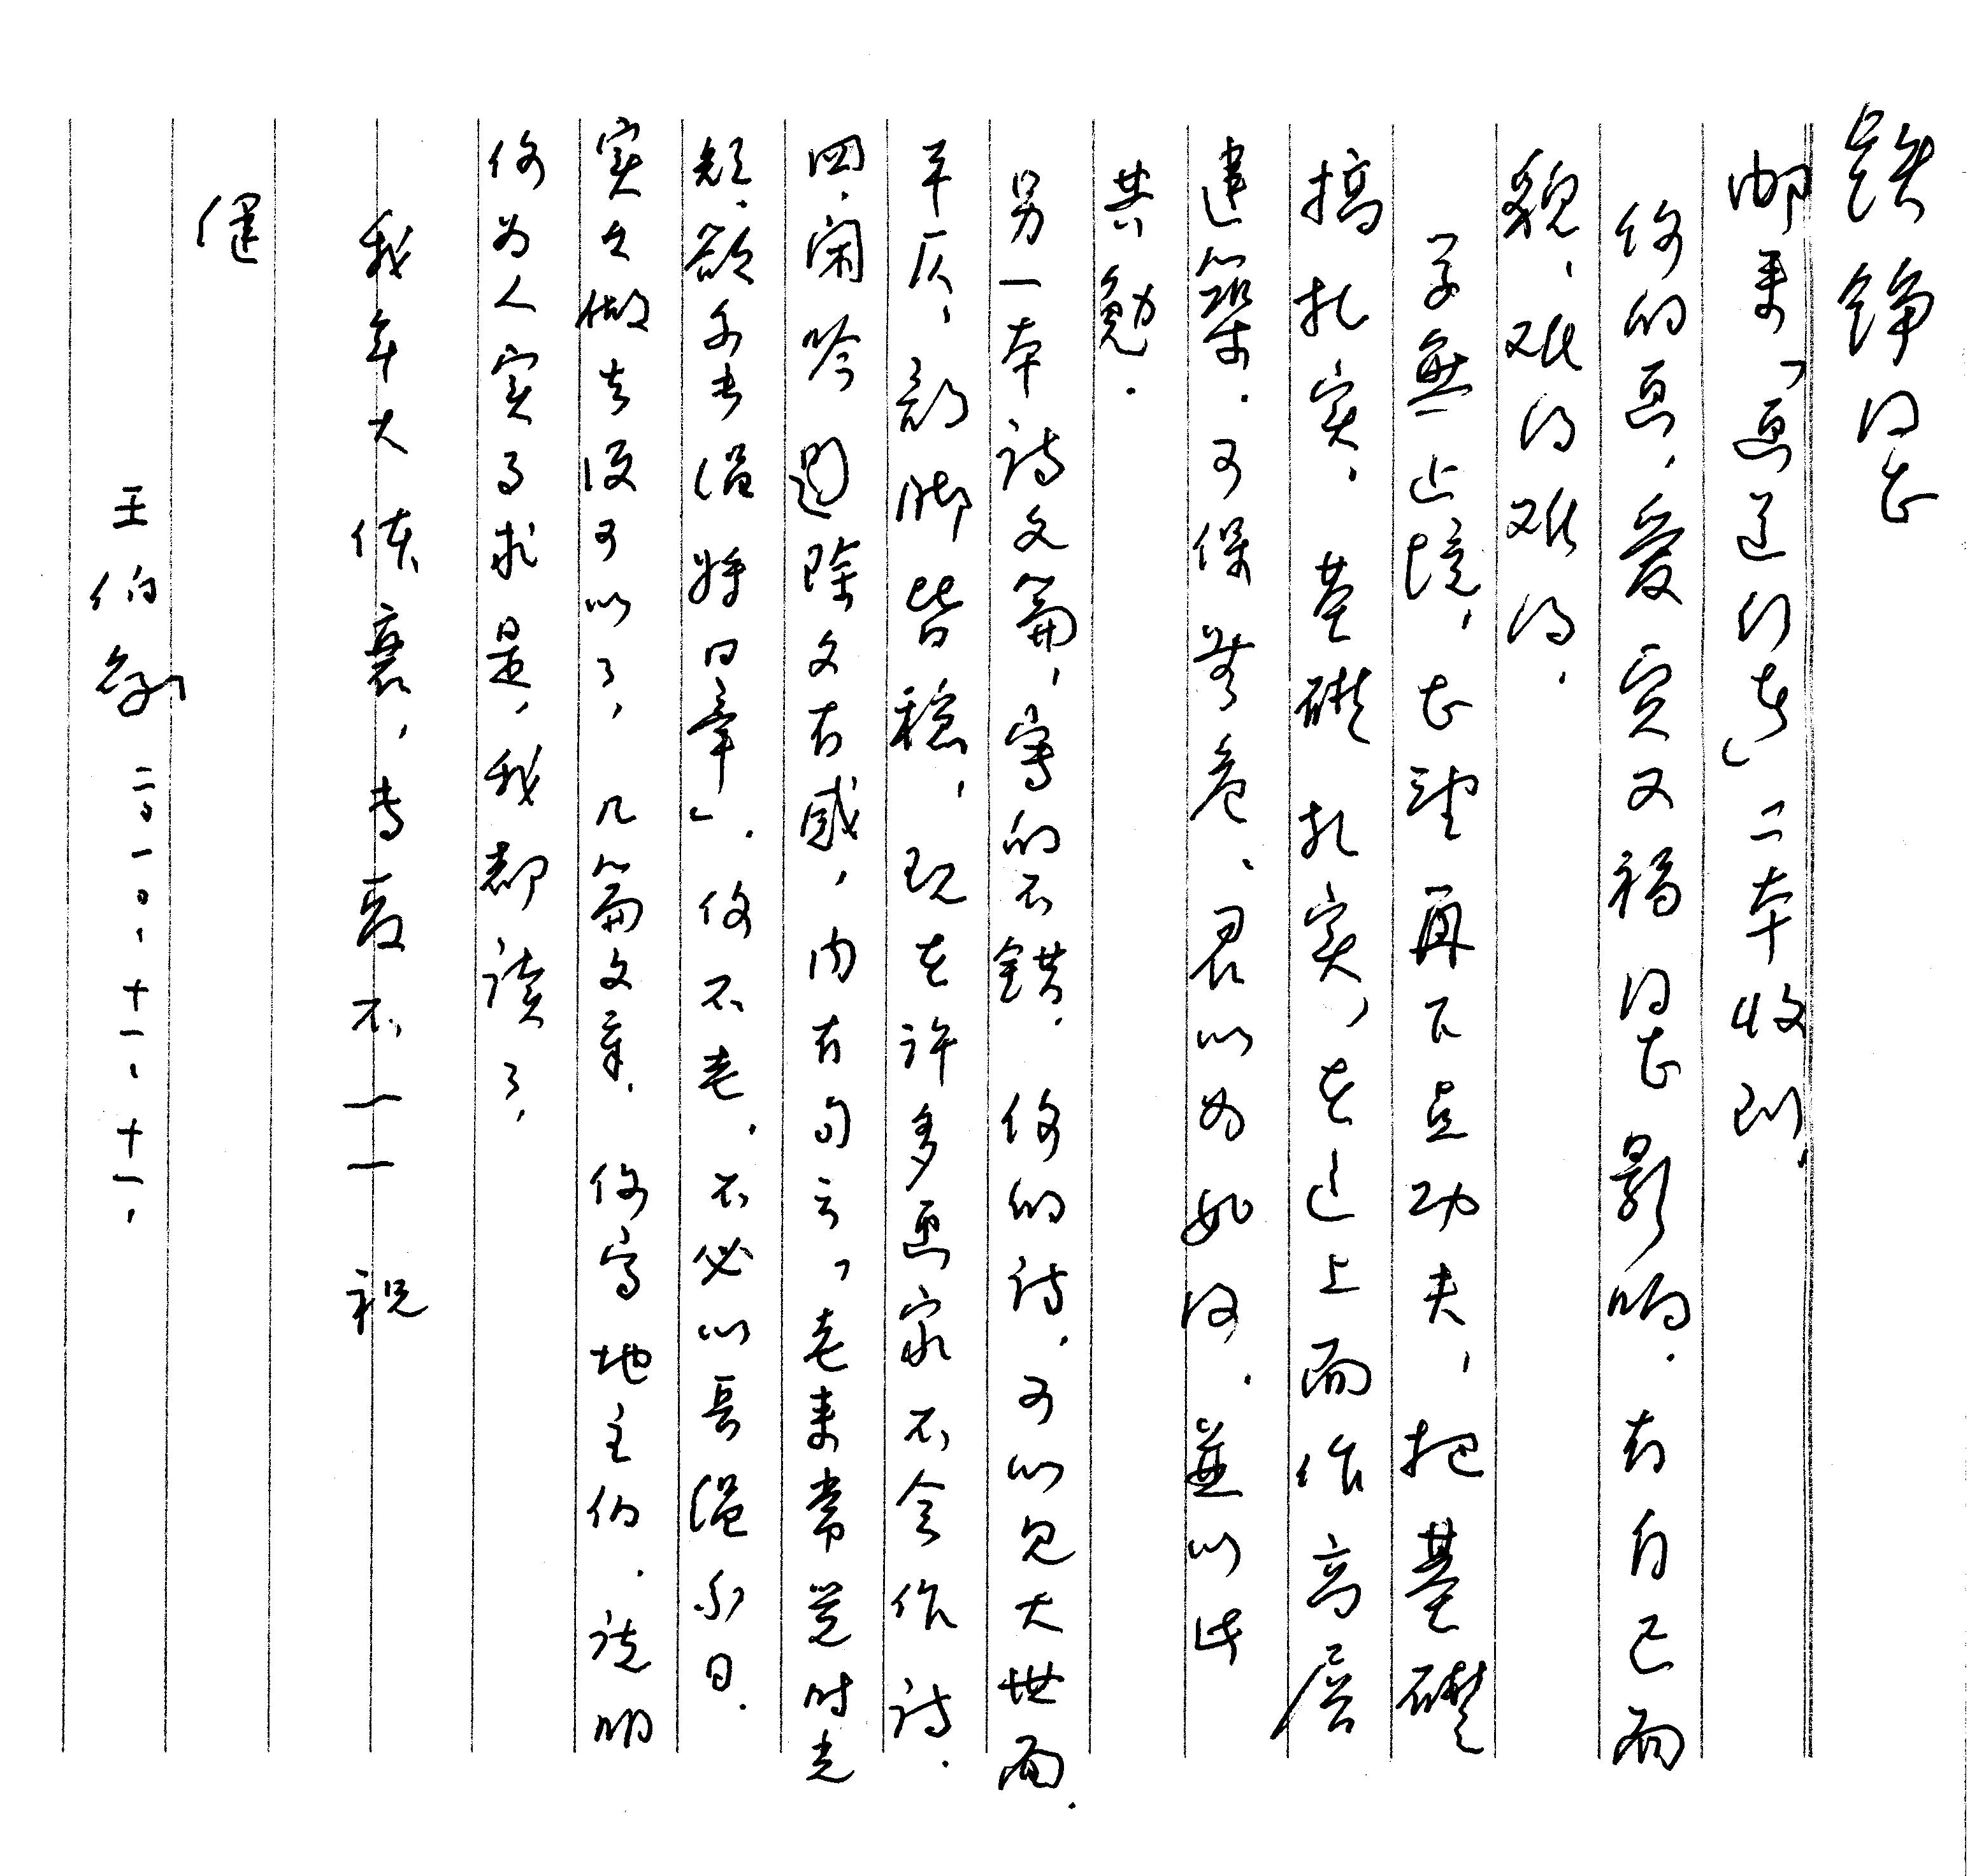 铁铮同志
邮来「画道行走」二本收到.
你的画，爱宾又福同志影响. 有自己面
貌，难得难得.
学無止境，志望再下点功夫，把基礎
搞扎实. 基礎扎实，在这上面作高层
建築. 可保無危、君以为如何. 並以此
共勉.
另一本诗文篇，寫的不错. 你的诗. 可以见大世面.
平仄，韵脚皆稳，现在许多画家不会作诗.
四. 闲吟 除文有感，内有句云「老来常觉时光
短. 欲乐 将日牽」. 你不老. 不必以長 日.
实去做去便可以了，几篇文章. 你写地主伯. 说明
你为人实事求是，我都读了，
我年大体衰，专复不一一 祝
健
王伯敏 二〇一〇、十一、十一，